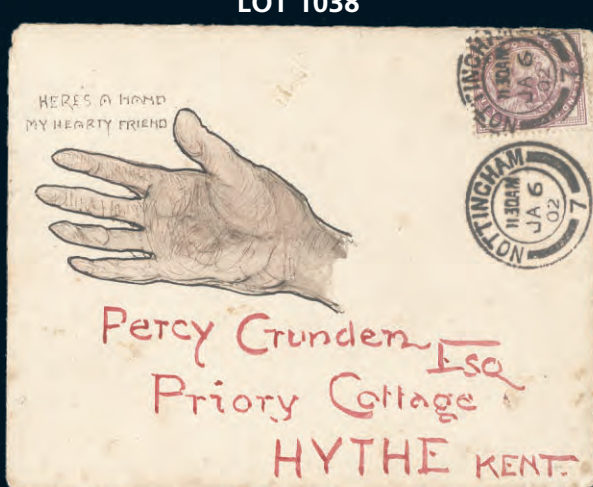 LOT 1038
HERE'S A HAND
MY HEARTY FRIEND
NOTTINGHAM
11.30AM
JA 6
02
7
NOTTINGHAM
11.30AM
JA 6
02
7
Percy Crunden Esq
Priory Cottage
HYTHE KENT.